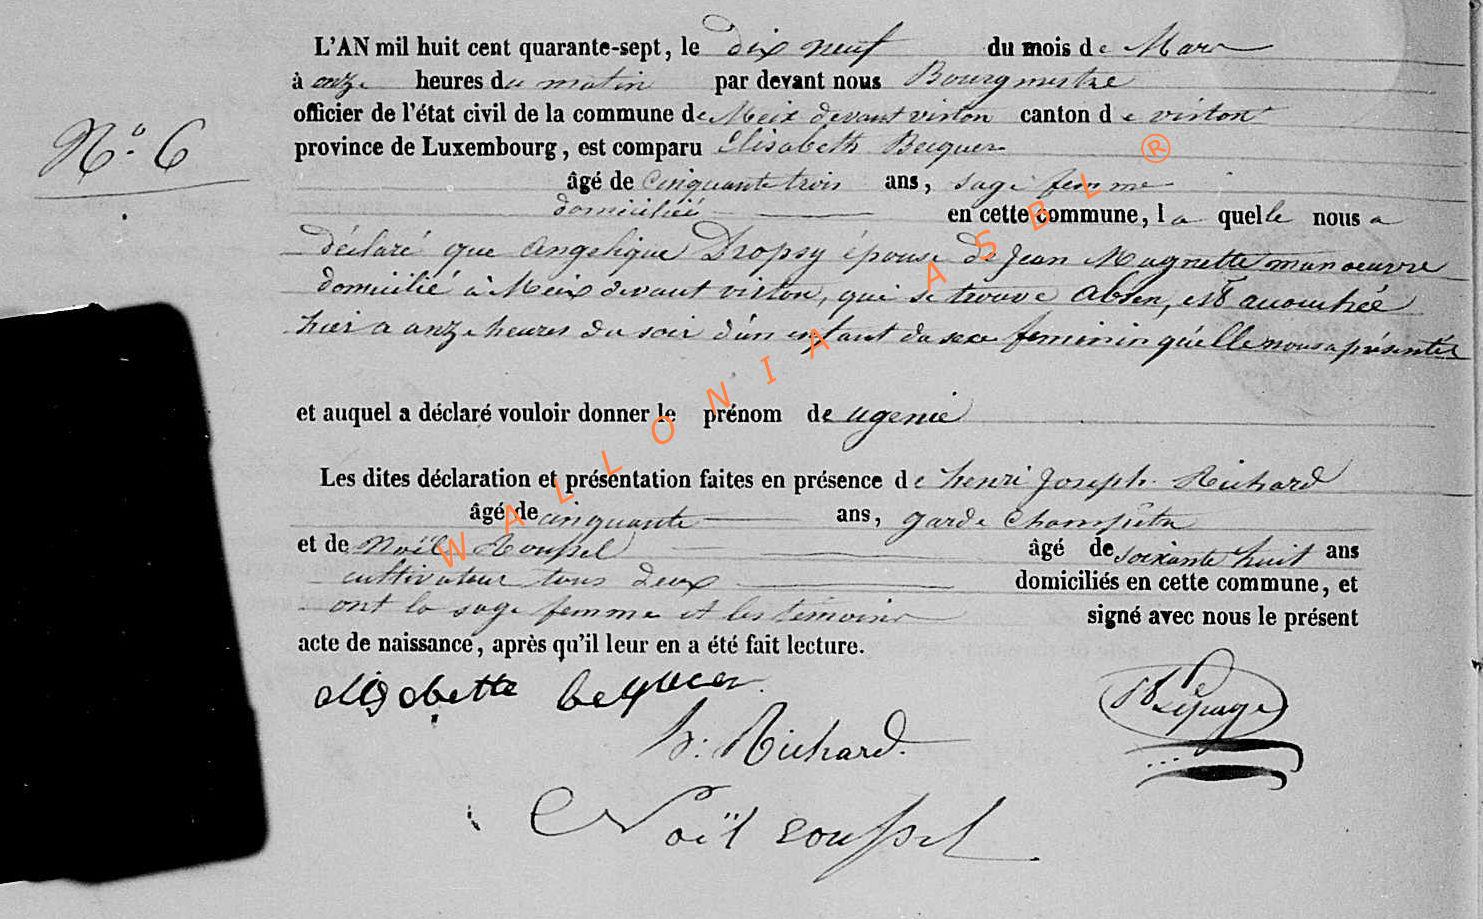 L'AN mil huit cent quarante-sept, le dix neuf du mois de Mars
à onze heures du matin par devant nous Bourgmestre
officier de l'état civil de la commune de Meix devant virton canton de virton
N.° 6
province de Luxembourg, est comparu Elisabeth Becquer
âgé de Cinquante trois ans, sage femme
domiciliée en cette commune, la quelle nous a
déclaré que Angelique Dropsy épouse de Jean Magnette manoeuvre
domicilié à Meix devant virton, qui se trouve absen, est accouchée
hier a onze heures du soir d'un enfant du sexe feminin qu'elle nous a présenté
et auquel a déclaré vouloir donner le prénom de ugenie
Les dites déclaration et présentation faites en présence de henri Joseph Richard
âgé de cinquante ans, garde Champêtre
et de Noël Roussel âgé de soixante huit ans
cultivateur tous deux domiciliés en cette commune, et
ont la sage femme et les témoins signé avec nous le présent
acte de naissance, après qu'il leur en a été fait lecture.
elisabette becquer
Lepage
h. Richard.
Noël roussel
WALLONIA ASBL ®